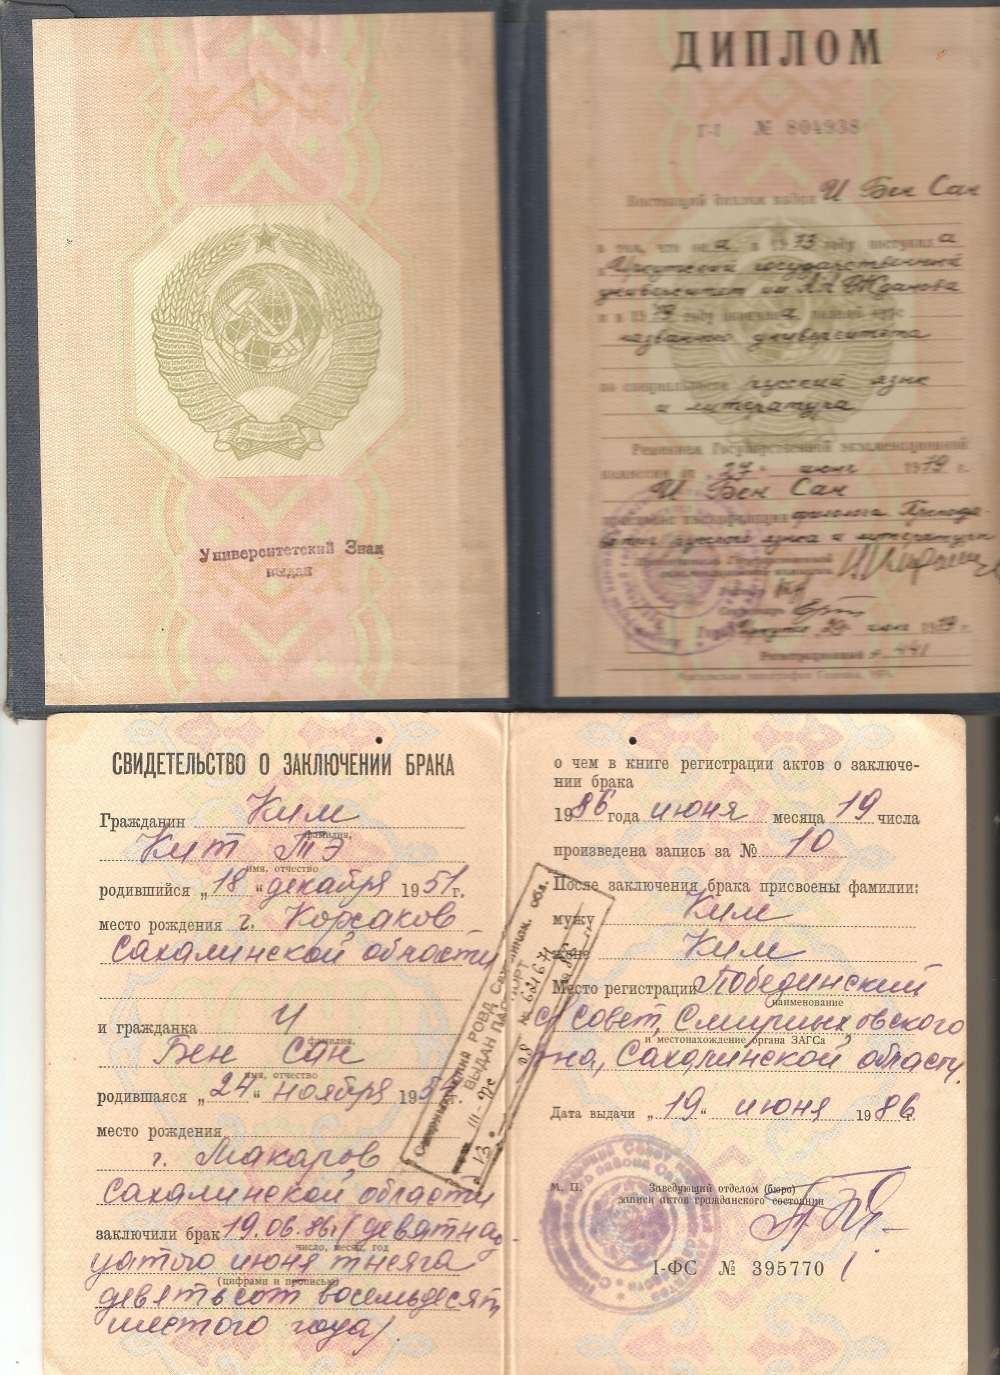 Университетский Знак
выдан
ДИПЛОМ
Г-I № 804938
Настоящий диплом выдан И Бен Сан
в том, что он а в 1973 году поступил а
в Иркутский государственный
университет им А.А. Жданова
и в 1979 году окончил а полный курс
названного университета
по специальности русский язык
и литература
Решением Государственной экзаменационной
комиссии от „27“ июня 1979 г.
И Бен Сан
присвоена квалификация филолога. Препода-
вателя русского языка и литературы
Председатель Государственной
экзаменационной комиссии
Ректор
Секретарь
Город Иркутск 29 июня 1979 г.
Регистрационный № 441
Московская типография Гознака.
СВИДЕТЕЛЬСТВО О ЗАКЛЮЧЕНИИ БРАКА
Гражданин Ким
фамилия,
Кит Тэ
имя, отчество
родившийся „18“ декабря 1951 г.
место рождения г. Корсаков
Сахалинской области
и гражданка И
фамилия,
Бен Сан
имя, отчество
родившаяся „24“ ноября 195 г.
место рождения
г. Макаров
Сахалинской области
заключили брак 19.06.86г (девятнад-
число, месяц, год
цатого июня тысяча
(цифрами и прописью)
девятьсот восемьдесят
шестого года)
о чем в книге регистрации актов о заключе-
нии брака
1986 года июня месяца 19 числа
произведена запись за № 10
После заключения брака присвоены фамилии:
мужу Ким
жене Ким
Место регистрации Побединский
наименование
с/совет, Смирныховского
и местонахождение органа ЗАГСа
р-на, Сахалинской области.
Дата выдачи „19“ июня 1986 г.
М. П.
Заведующий отделом (бюро)
записи актов гражданского состояния
I-ФС № 395770
РОВД Сахалинск. обл.
ВЫДАН ПАСПОРТ
III-ФС № 621671